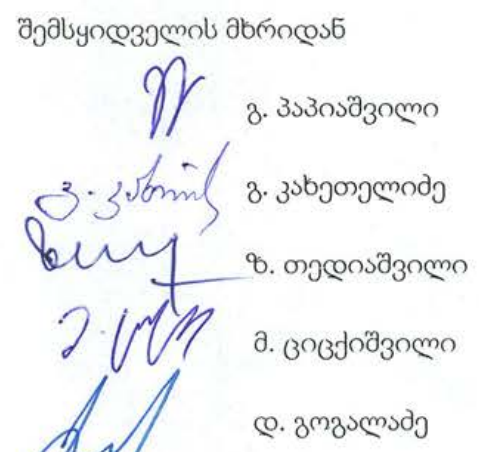 შემსყიდველის მხრიდან
გ. პაპიაშვილი
გ. კახეთელიძე
ზ. თედიაშვილი
მ. ციცქიშვილი
დ. გოგალაძე